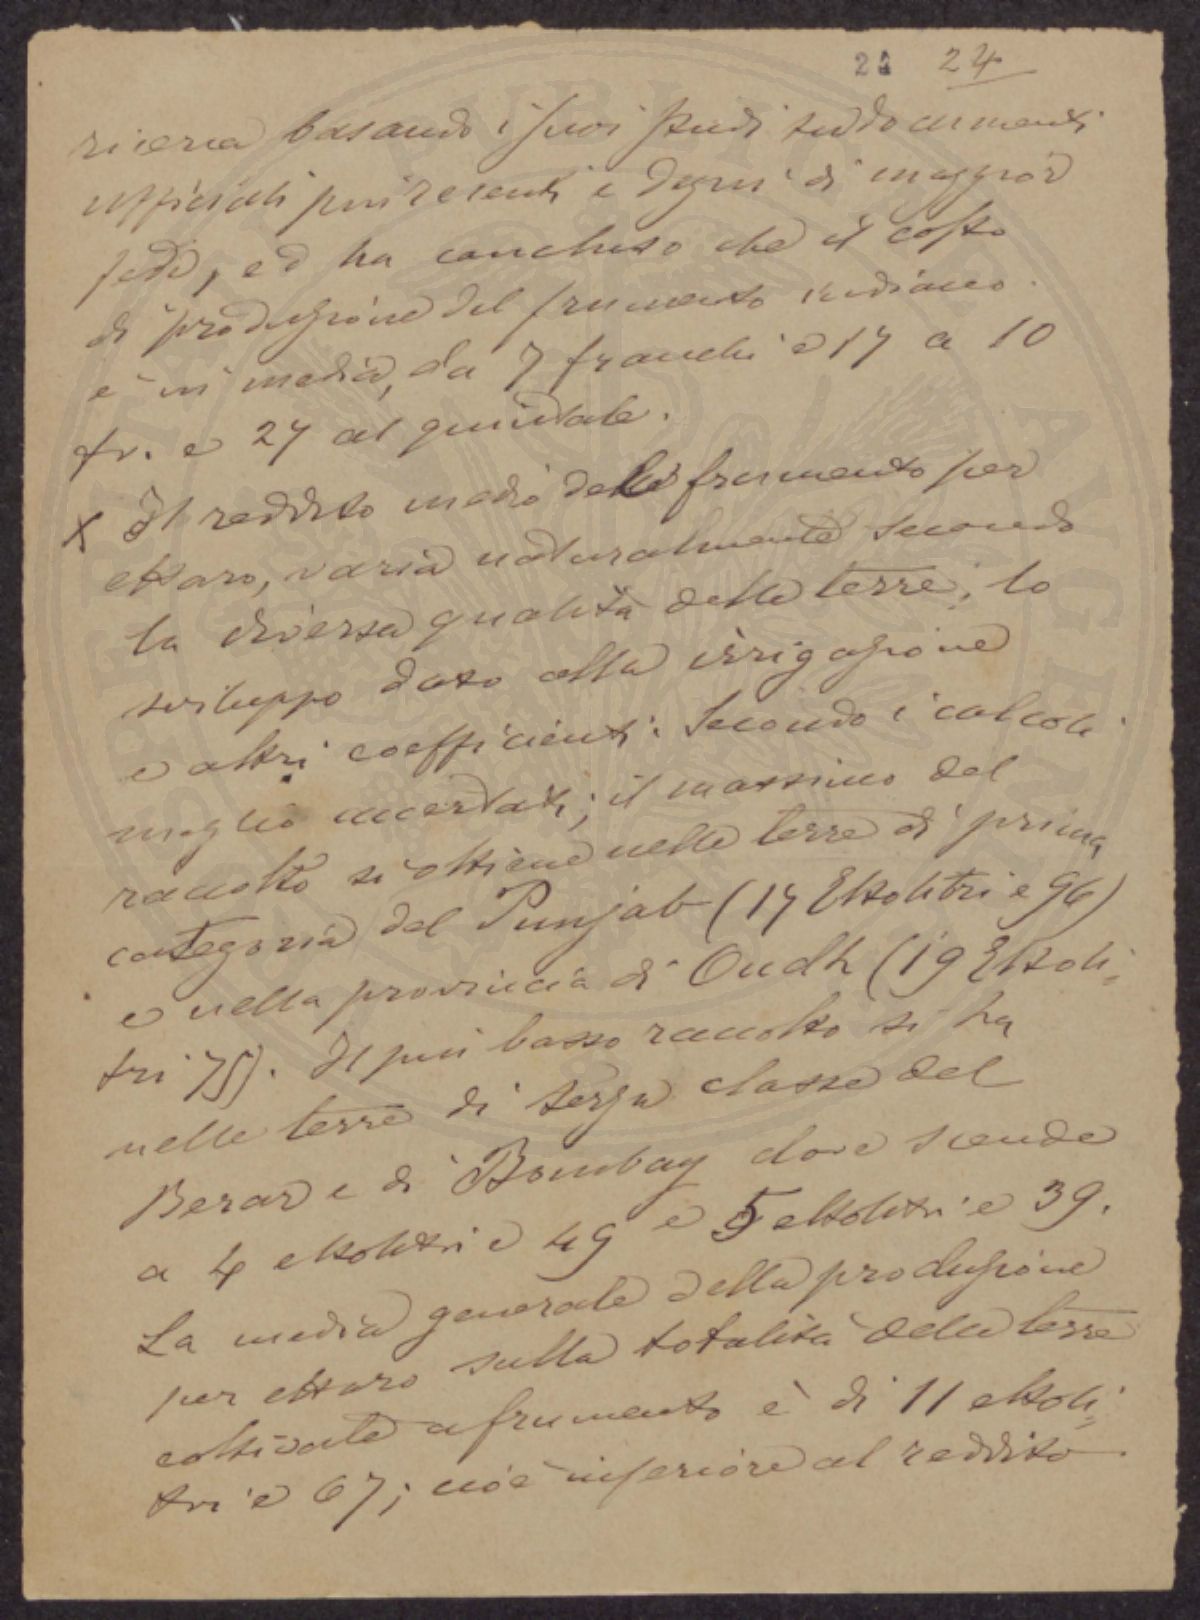 24 24
ricerca basando i suoi studi su documenti
ufficiali più recenti e degni di maggior
fede, ed ha concluso che il costo
di produzione del frumento indiano
è in media, da 7 franchi e 17 a 10
fr. e 27 al quintale.
X Il reddito medio del frumento per
ettaro, varia naturalmente secondo
la diversa qualità delle terre, lo
sviluppo dato alla irrigazione
e altri coefficienti. Secondo i calcoli
meglio accertati; il massimo del
raccolto si ottiene nelle terre di prima
categoria del Punjab (17 Ettolitri e 96)
e nella provincia di Oudh (19 Ettoli=
tri 75). Il più basso raccolto si ha
nelle terre di terza classe del
Berar e di Bombay dove scende
a 4 ettolitri e 49 e 5 ettolitri e 39.
La media generale della produzione
per ettaro sulla totalità delle terre
coltivate a frumento è di 11 ettoli=
tri e 67; cioè inferiore al reddito